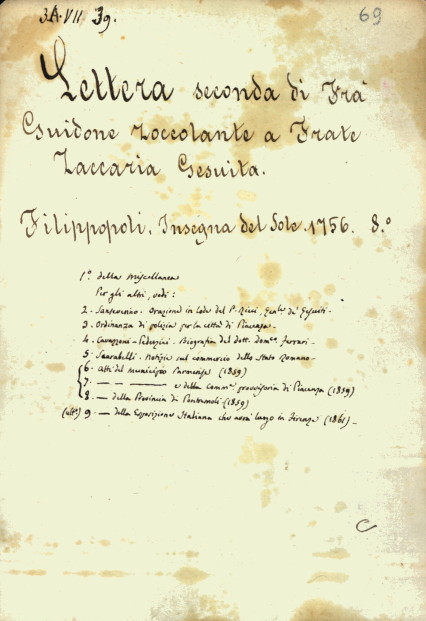 3A.VII 39.
69
Lettera seconda di Fra
Guidone Zoccolante a Frate
Zaccaria Gesuita.
Filippopoli. Insegna del Sole. 1756. 8.º
1º della Miscellanea
Per gli altri, vedi:
2 - Sanseverino. Orazione in lode del P. Ricci, Genle de' Gesuiti -
3 - Ordinanza di polizia per la città di Piacenza -
4 - Cavazzoni-Pederzini. Biografia del dott. Domco Ferrari -
5 - Scarabelli. Notizie sul commercio dello Stato Romano -
6 - Atti del Municipio Parmense (1859)
7 - — — — e della Commne provvisoria di Piacenza (1859)
8 - — della Provincia di Pontremoli (1859)
(ulto) 9 - — della Esposizione Italiana che avrà luogo in Firenze (1861) -
C